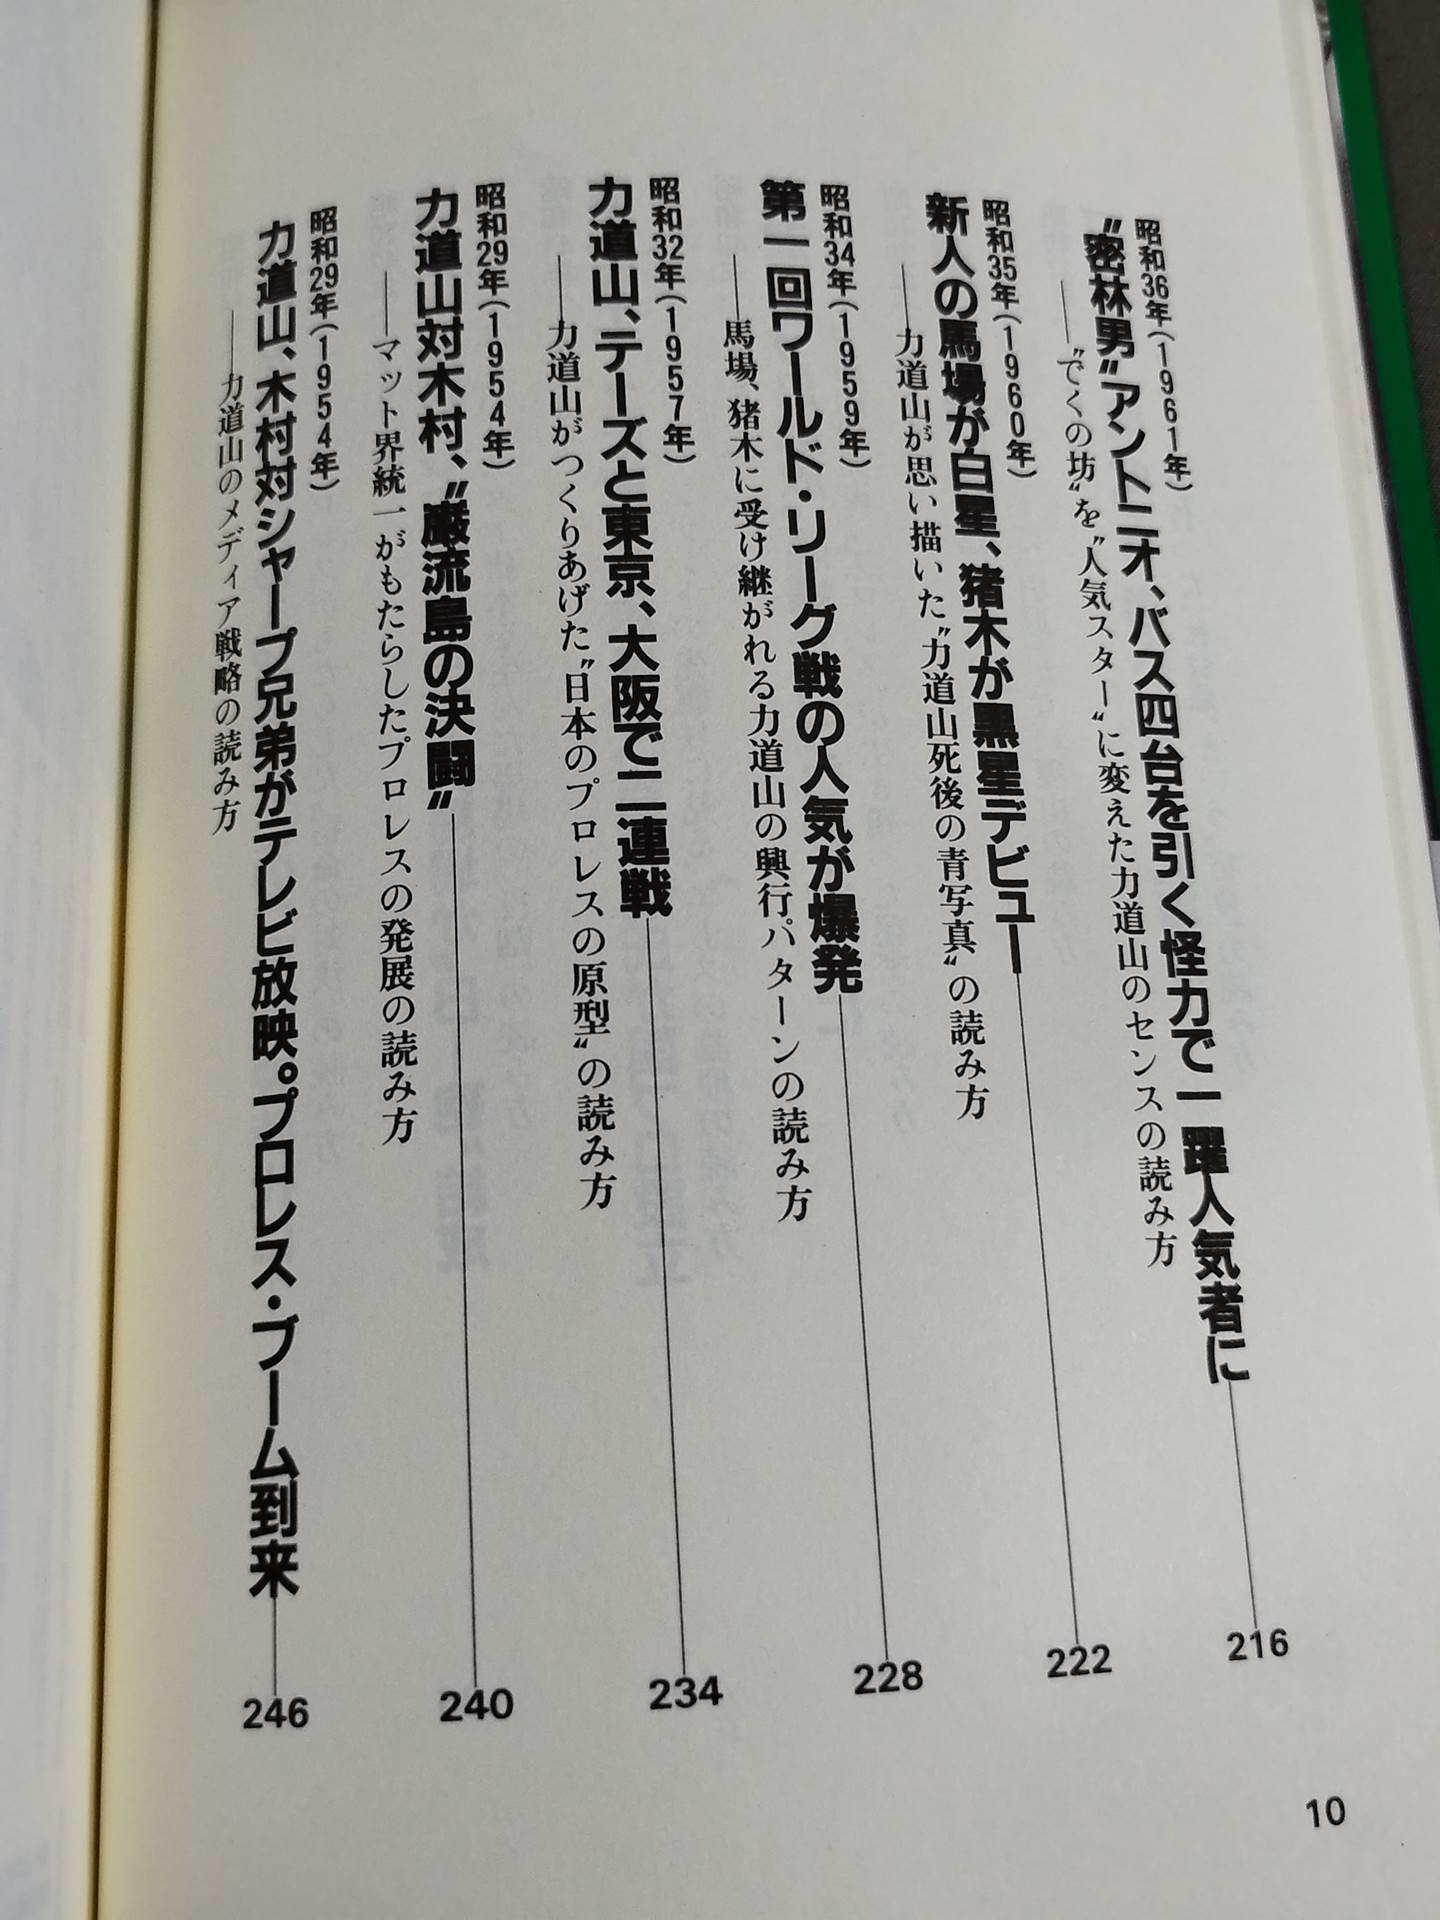 昭和36年(1961年)
〝密林男〟アントニオ、バス四台を引く怪力で一躍人気者に 216
——〝でくの坊〟を〝人気スター〟に変えた力道山のセンスの読み方
昭和35年(1960年)
新人の馬場が白星、猪木が黒星デビュー 222
——力道山が思い描いた〝力道山死後の青写真〟の読み方
昭和34年(1959年)
第一回ワールド・リーグ戦の人気が爆発 228
——馬場、猪木に受け継がれる力道山の興行パターンの読み方
昭和32年(1957年)
力道山、テーズと東京、大阪で二連戦 234
——力道山がつくりあげた〝日本のプロレスの原型〟の読み方
昭和29年(1954年)
力道山対木村、〝巌流島の決闘〟 240
——マット界統一がもたらしたプロレスの発展の読み方
昭和29年(1954年)
力道山、木村対シャープ兄弟がテレビ放映。プロレス・ブーム到来 246
——力道山のメディア戦略の読み方
10